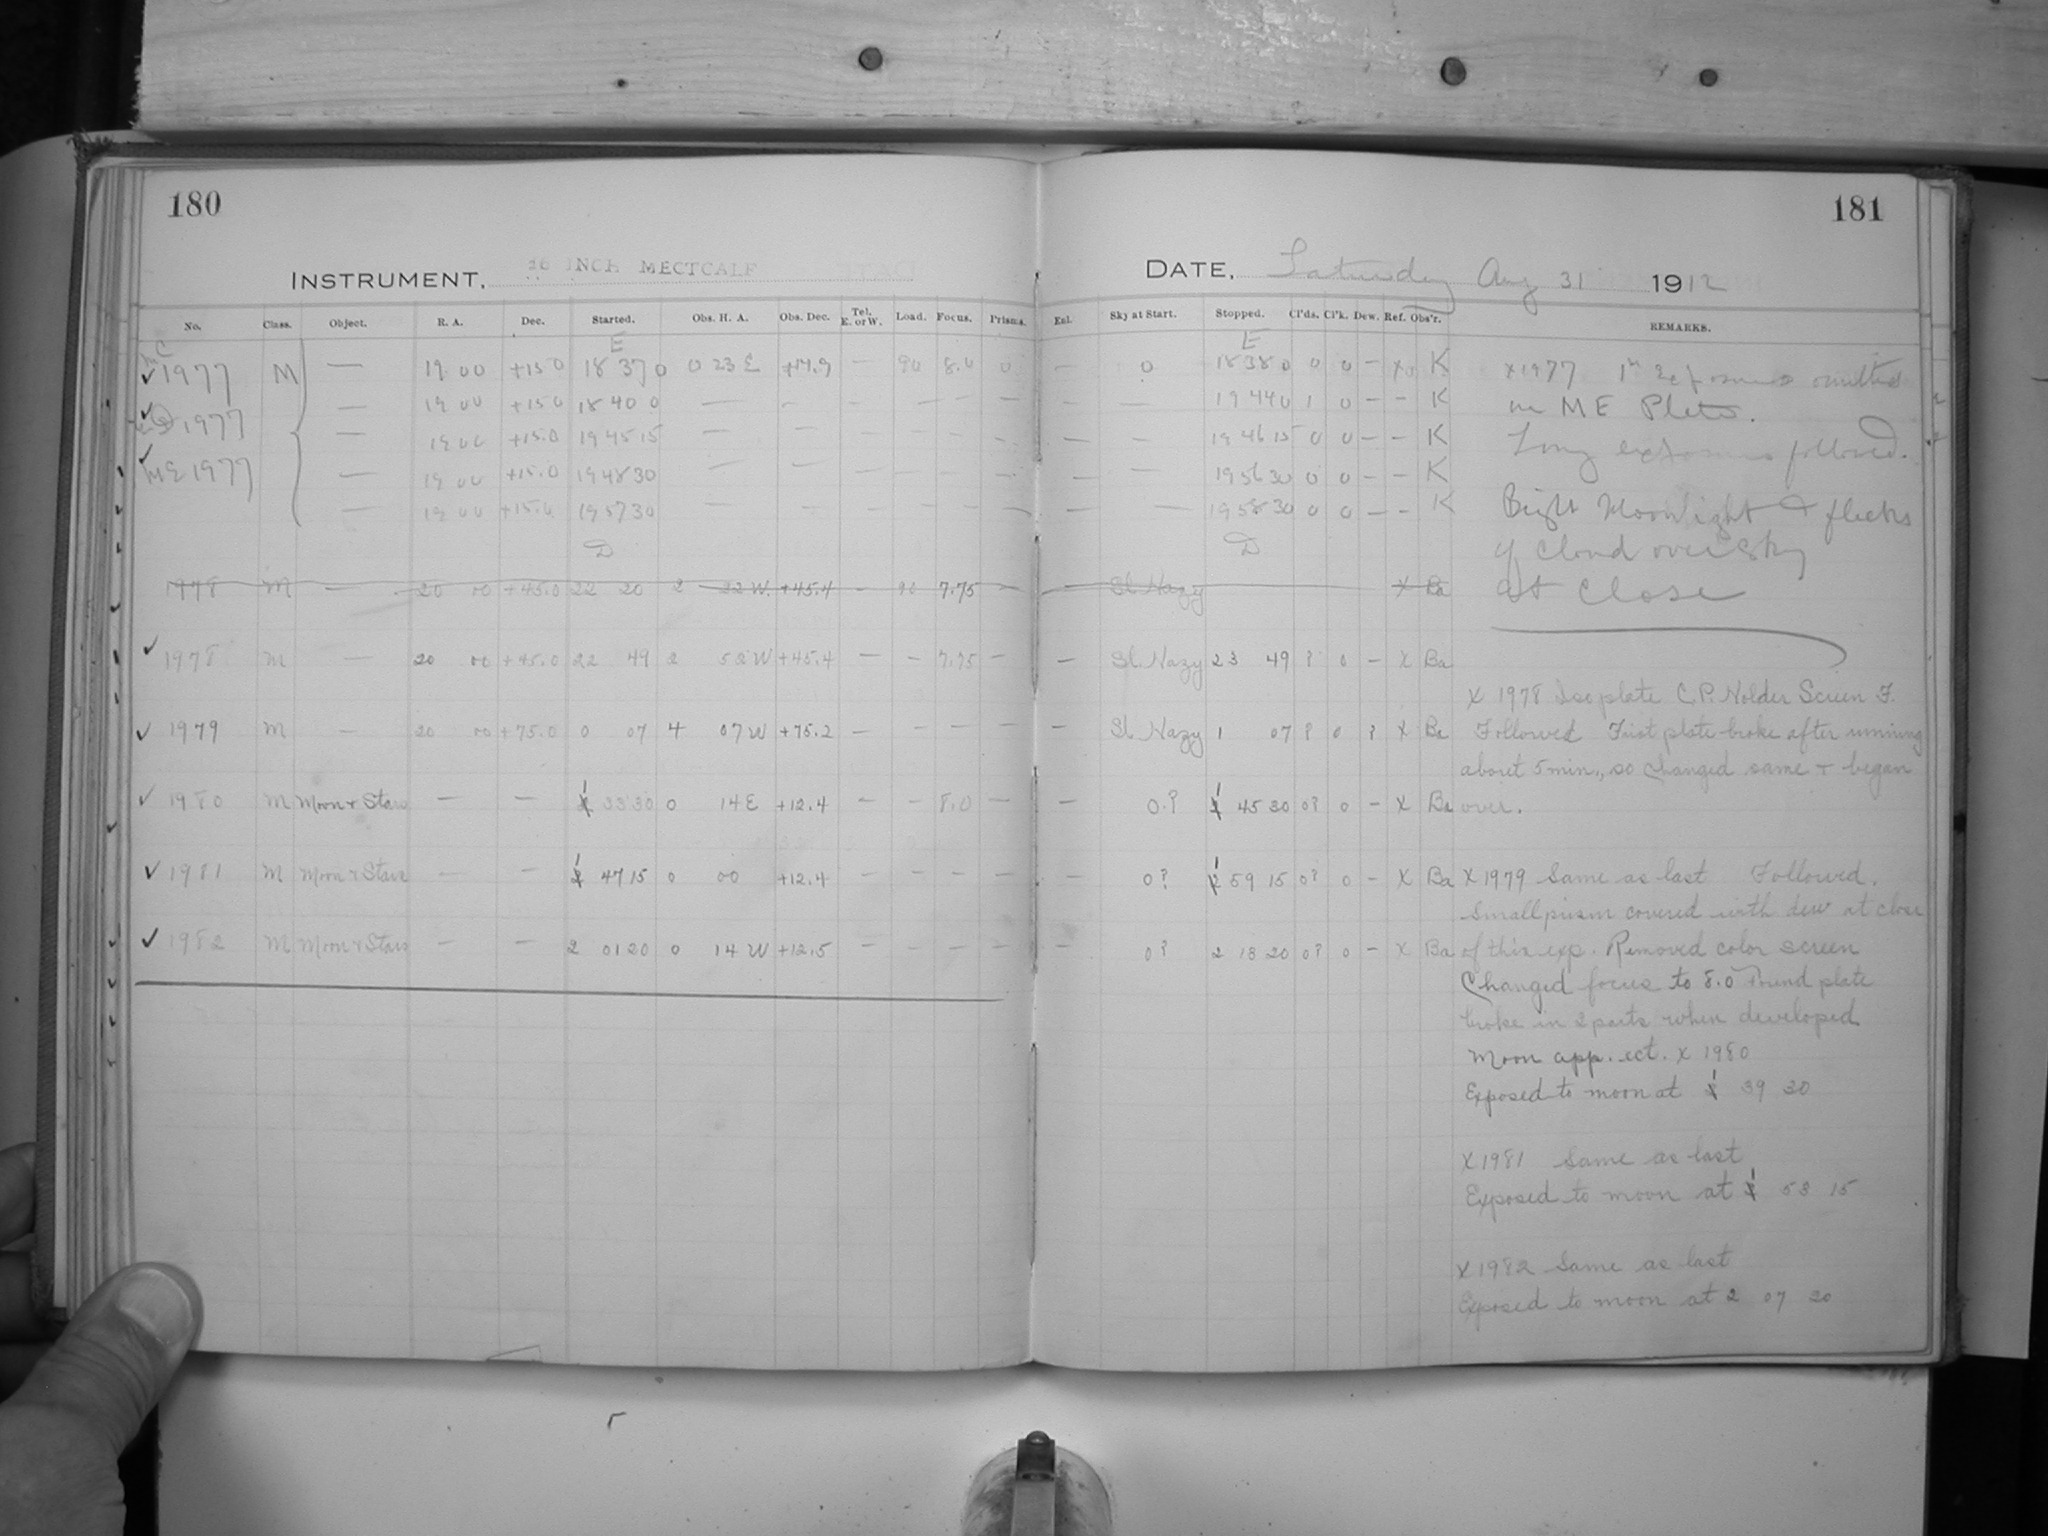 180
181
INSTRUMENT, 16 INCH MECTCALF
DATE, Saturday Aug 31 1912
No. Class. Object. R. A. Dec. Started. Obs. H. A. Obs. Dec. Tel. E. or W. Load. Focus. Prisms. Enl. Sky at Start. Stopped. Cl'ds. Cl'k. Dew. Ref. Obs'r. REMARKS.
E E
1977 M — 19 00 +15 0 18 37 0 0 23 E +14.9 — 90 8.0 0 — 0 18 38 0 0 0 — x K
1977 — 19 00 +15 0 18 40 0 — — — — — — — — 19 44 0 1 0 — — K
— 19 00 +15.0 19 45 15 — — — — — — — — 19 46 15 0 0 — — K
ME 1977 — 19 00 +15.0 19 48 30 — — — — — — — — 19 56 30 0 0 — — K
— 19 00 +15.0 19 57 30 — — — — — — — — 19 58 30 0 0 — — K
D D
1978 M — 20 00 +45.0 22 20 2 22 W. +45.4 — 90 7.75 — — Sl. Hazy x Ba
1978 M — 20 00 +45.0 22 49 2 52 W +45.4 — — 7.75 — — Sl. Hazy 23 49 ? 0 — x Ba
1979 M — 20 00 +75.0 0 07 4 07 W +75.2 — — — — — Sl. Hazy 1 07 ? 0 ? x Ba
1980 M Moon & Stars — — 1 33 30 0 14 E +12.4 — — 8.0 — — 0? 1 45 30 0? 0 — x Ba
1981 M Moon & Stars — — 1 47 15 0 00 +12.4 — — — — — 0? 1 59 15 0? 0 — x Ba
1982 M Moon & Stars — — 2 01 20 0 14 W +12.5 — — — — — 0? 2 13 20 0? 0 — x Ba
x 1977 1st exposure omitted
on ME Plate.
Long exposures followed.
Bright Moonlight & flecks
of cloud over sky
at close
x 1978 Iso plate C.P. Holder Screen F.
Followed First plate broke after running
about 5 min., so changed same & began
over.
x 1979 Same as last Followed.
Small prism covered with dew at close
of this exp. Removed color screen
Changed focus to 8.0 Found plate
broke in 2 parts when developed
Moon app. ect. x 1980
Exposed to moon at 1 39 30
x 1981 Same as last
Exposed to moon at 1 53 15
x 1982 Same as last
Exposed to moon at 2 07 20